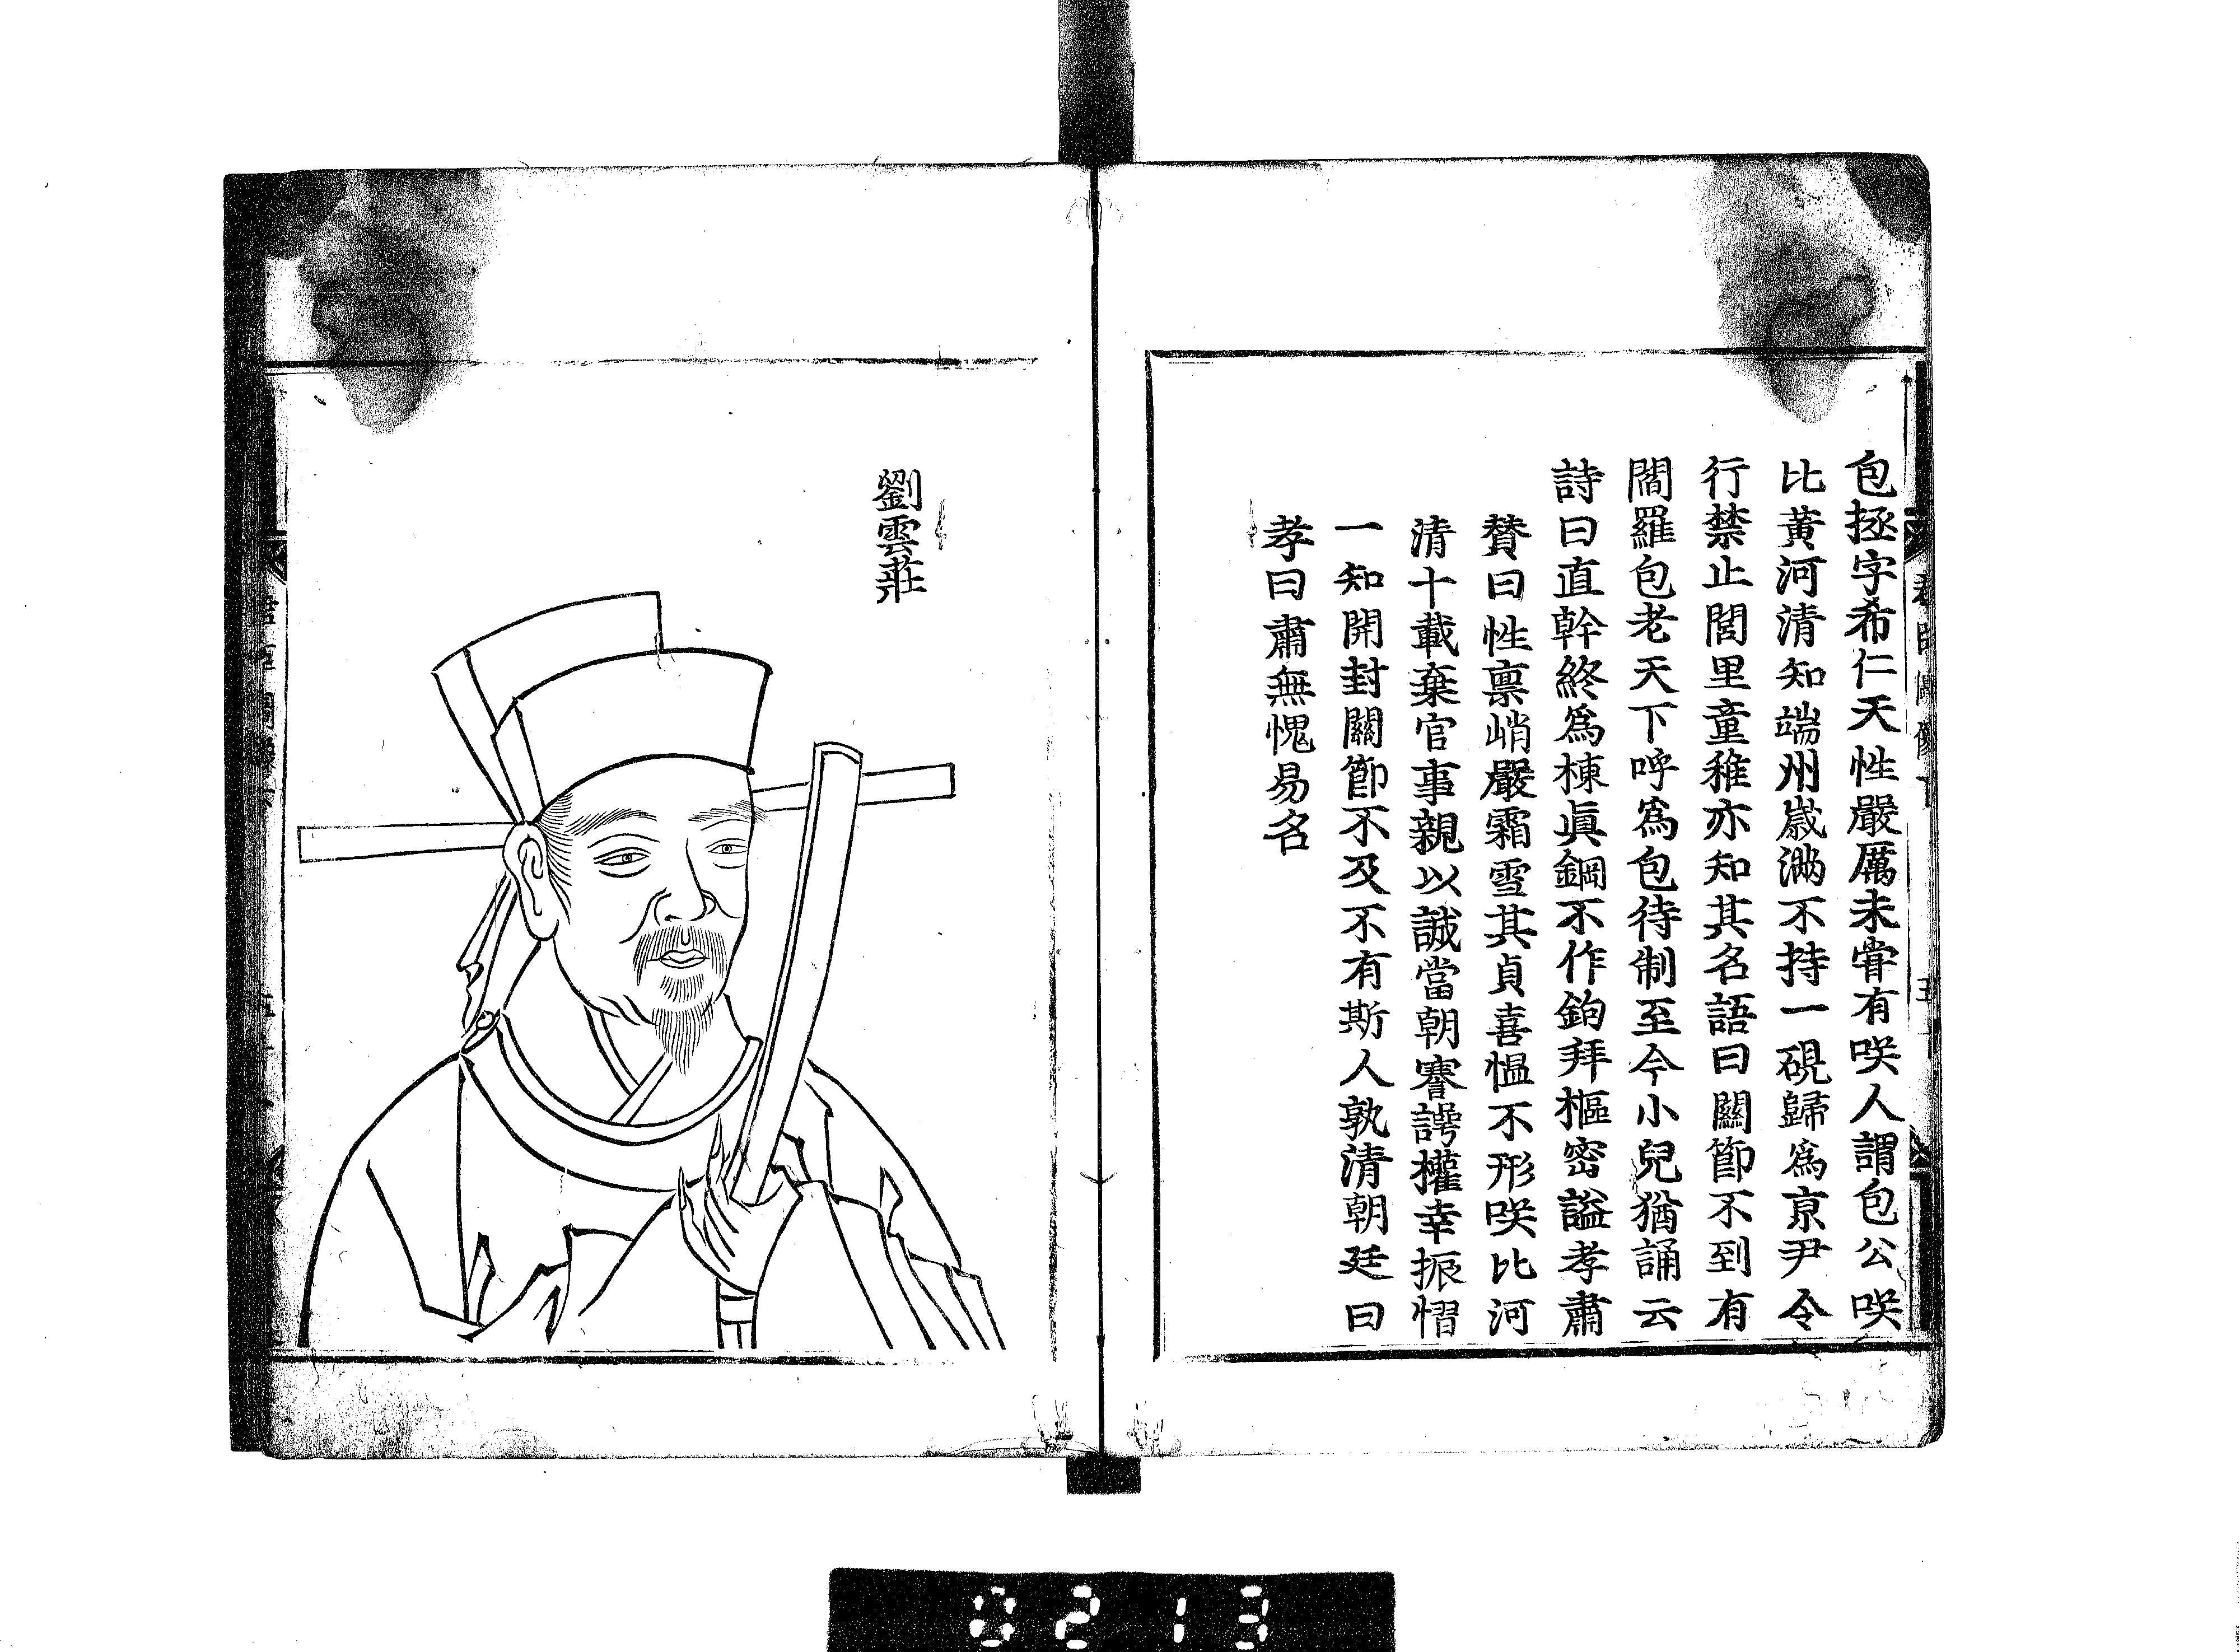 包拯字希仁天性嚴厲未甞有咲人謂包公咲
比黃河清知端州歲滿不持一硯歸爲京尹令
行禁止閭里童稚亦知其名語曰關節不到有
閻羅包老天下呼爲包待制至今小兒猶誦云
詩曰直幹終爲棟眞鋼不作鉤拜樞密謚孝肅
賛曰性禀峭嚴霜雪其貞喜慍不形咲比河
清十載棄官事親以誠當朝謇諤權幸振慴
一知開封關節不及不有斯人孰清朝廷曰
孝曰肅無愧易名
劉雲莊
0213